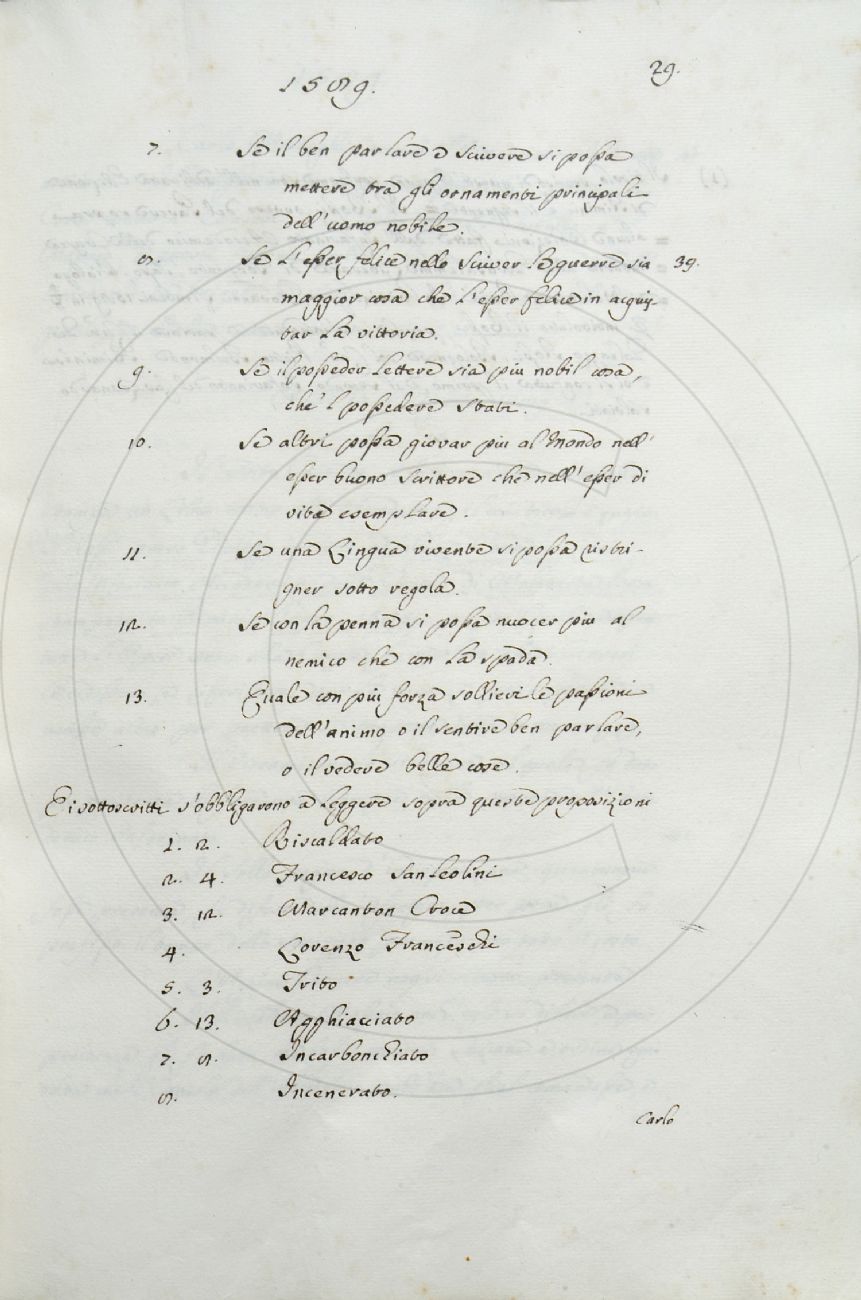 1589.
29.
7. Se il ben parlare e scrivere si possa
mettere tra gli ornamenti principali
dell'uomo nobile.
8. Se l'esser felice nello scriver le guerre sia 39.
maggior cosa che l'esser felice in acquis-
tar la vittoria.
9. Se il posseder lettere sia piu nobil cosa,
che'l possedere stati.
10. Se altri possa giovar piu al Mondo nell'
esser buono scrittore che nell'esser di
vita esemplare.
11. Se una Lingua vivente si possa ristri-
gner sotto regola.
12. Se con la penna si possa nuocer piu al
nemico che con la spada.
13. Quale con piu forza sollievi le passioni
dell'animo o il sentire ben parlare,
o il vedere belle cose.
E i sottoscritti s'obbligarono a leggere sopra queste proposizioni
1. 2. Riscaldato
2. 4. Francesco Sanleolini
3. 12. Marcanton Croce
4. Lorenzo Franceschi
5. 3. Trito
6. 13. Agghiacciato
7. 8. Incarbonchiato
8. Incenerato.
Carlo